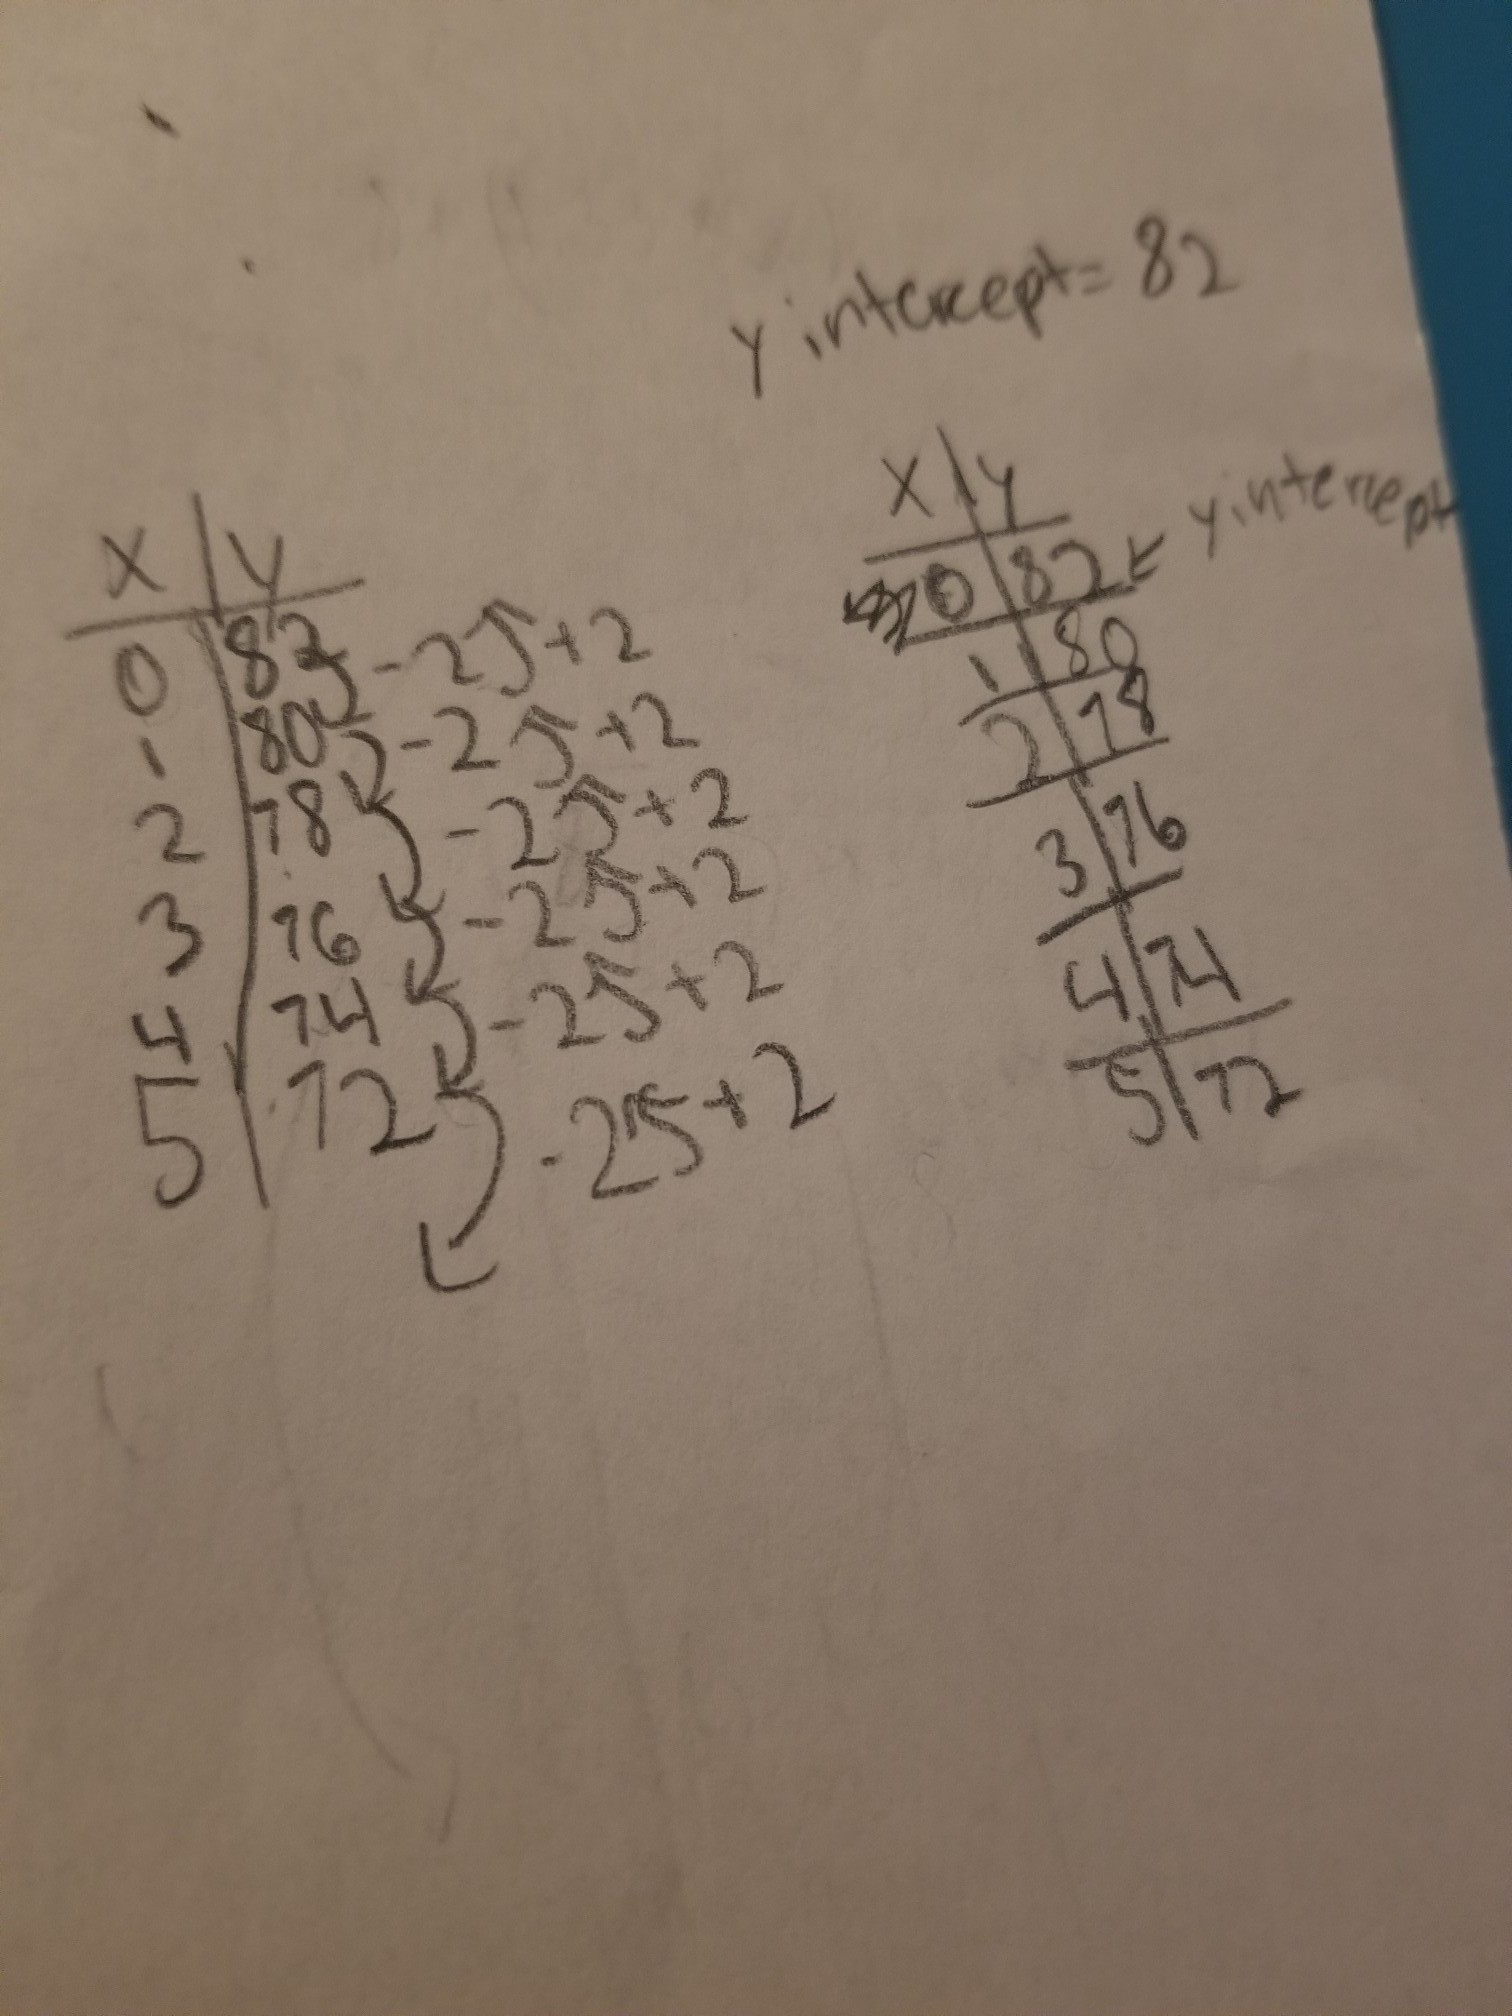 y intercept = 82
x | y
0 | 82 -25+2
1 | 80 -25+2
2 | 78 -25+2
3 | 76 -25+2
4 | 74 -25+2
5 | 72 -25+2
x | y
0 | 82 ← y intercept
1 | 80
2 | 78
3 | 76
4 | 74
5 | 72